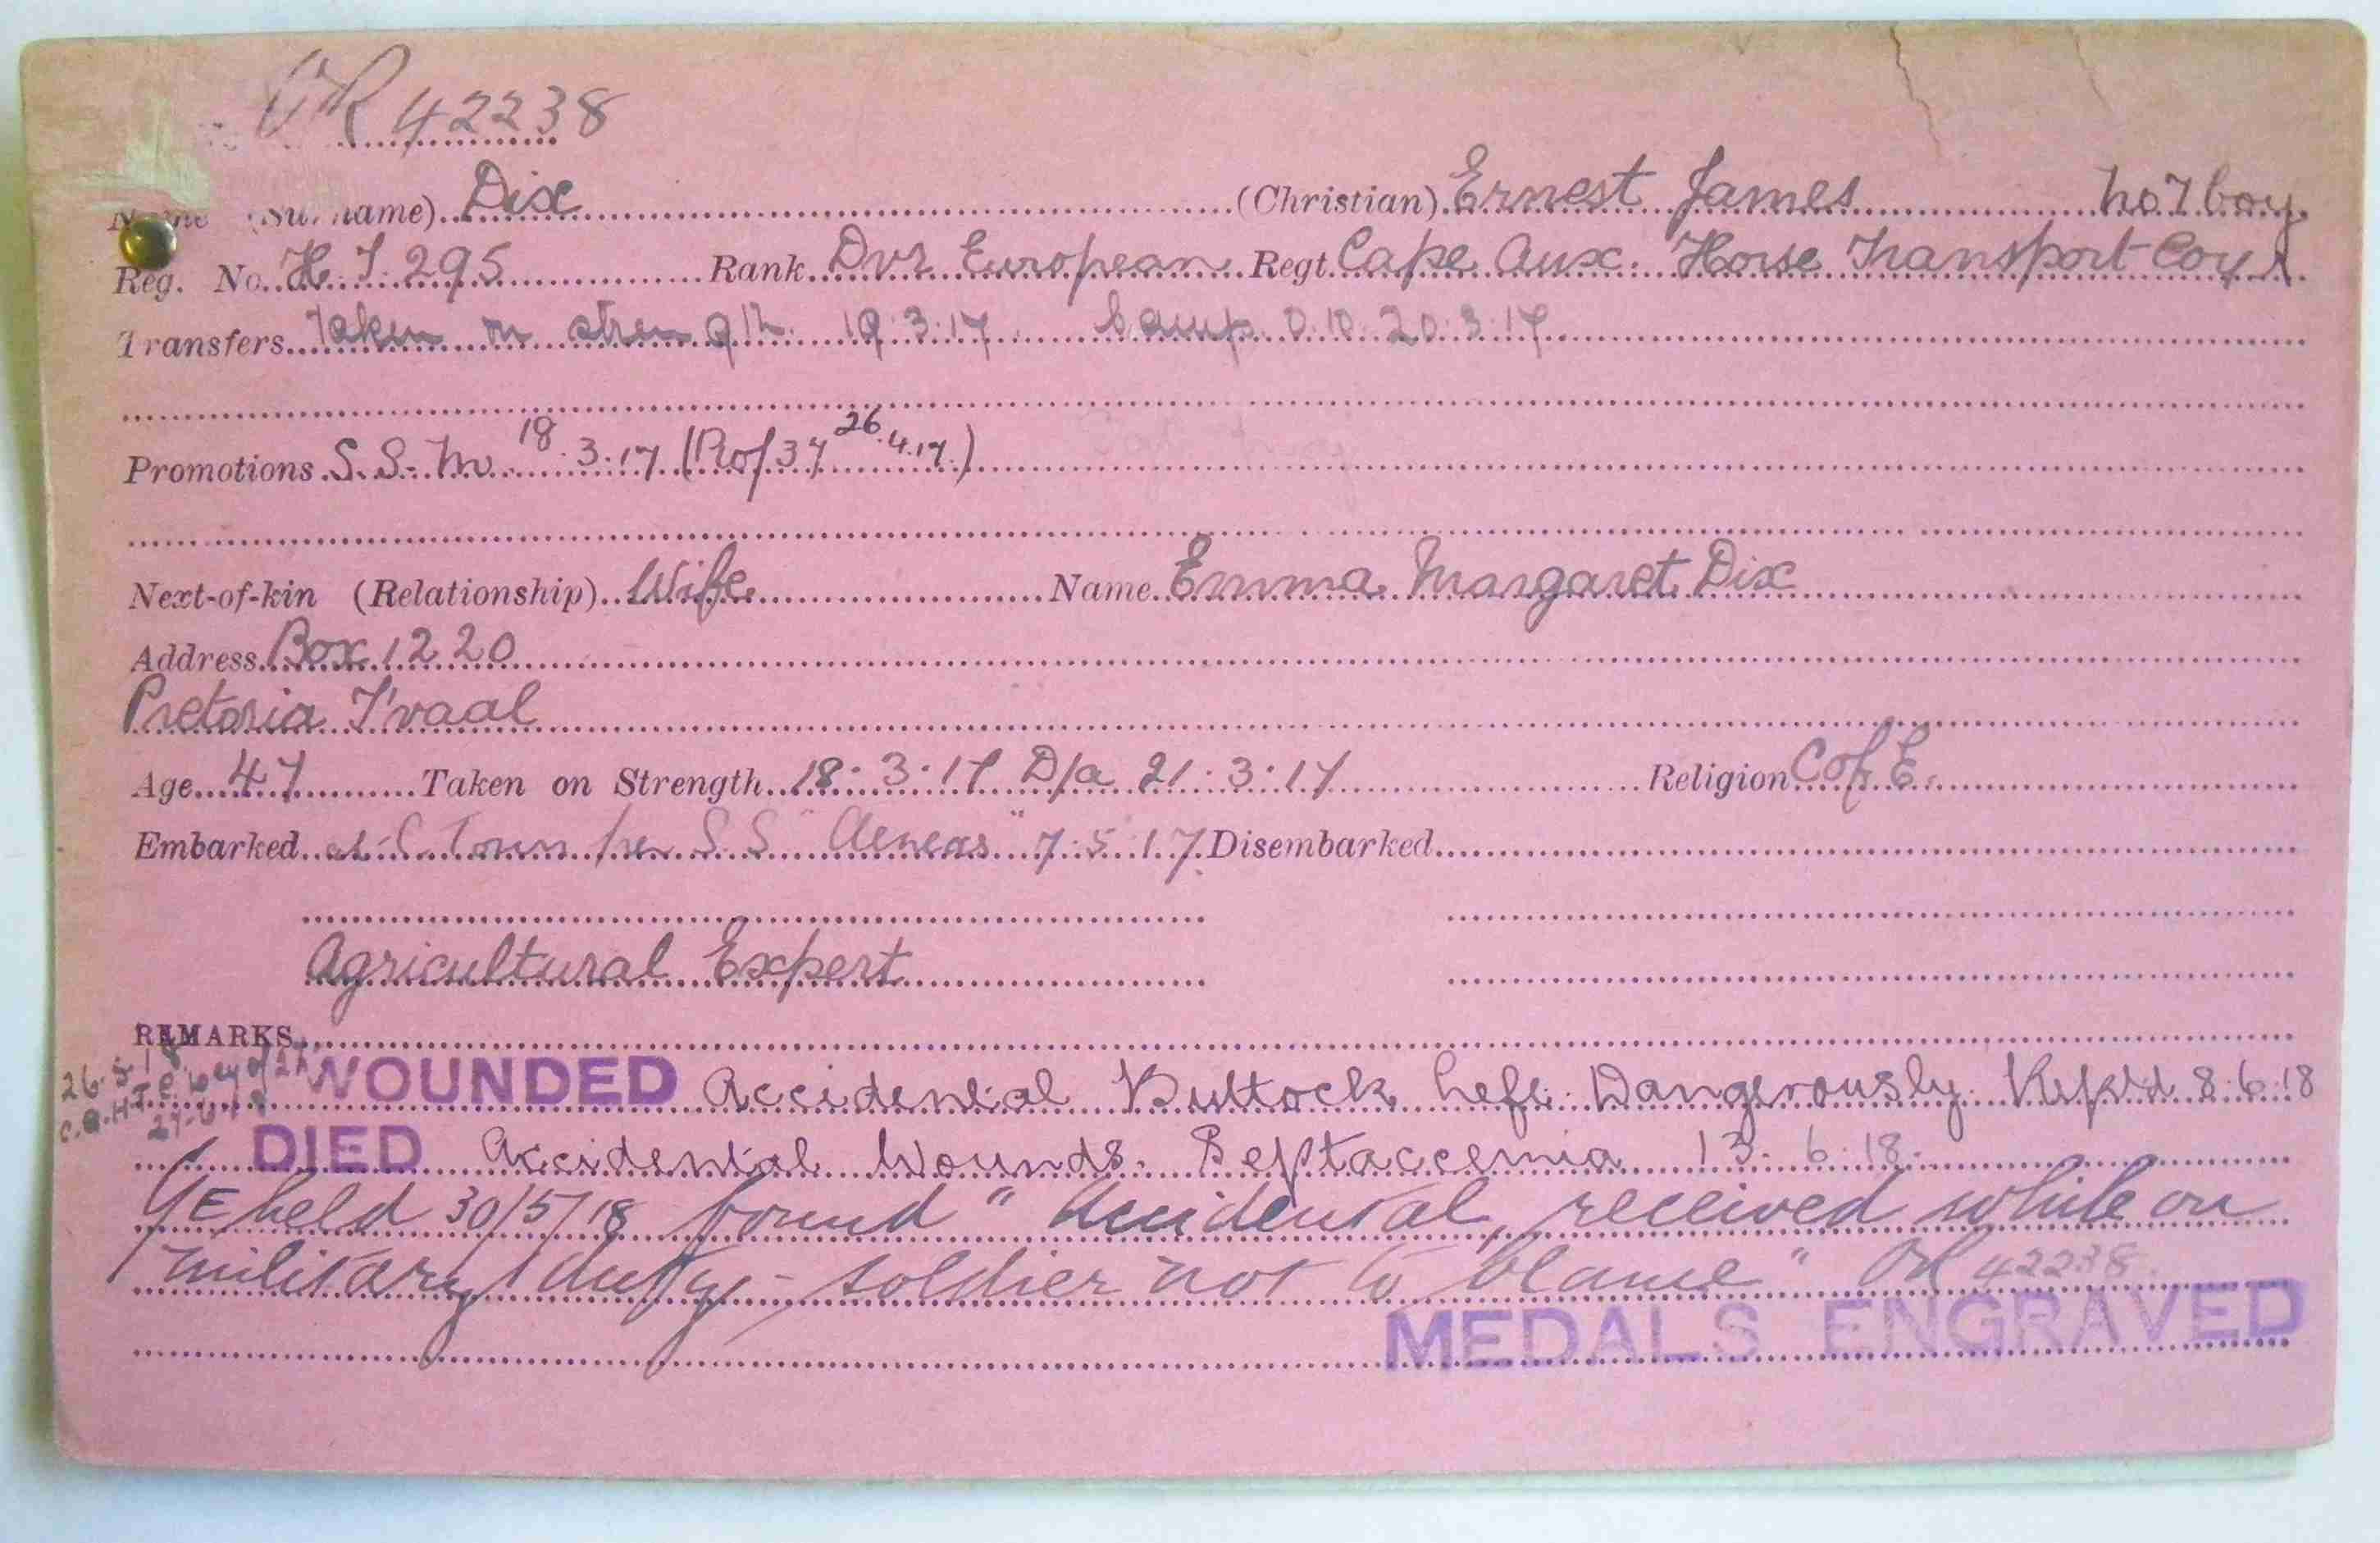 OR 42238
Name (Surname) Dix (Christian) Ernest James No 7 Coy.
Reg. No. H.T. 295 Rank Dvr European Regt. Cape Aux. Horse Transport Coys.
Transfers Taken on strength. 19.3.17 Camp. O.10. 20.3.17
Promotions S.S.M. 18.3.17 (Ptof 37 26.4.17.)
Next-of-kin (Relationship) Wife Name Emma Margaret Dix
Address Box 1220
Pretoria T'vaal
Age 47 Taken on Strength 18.3.17 D/a 21.3.17 Religion C of E.
Embarked at C Town per S.S "Aeneas" 7.5.17. Disembarked
Agricultural Expert
REMARKS
26.5.18
C.A.H.T.
WOUNDED Accidental Buttock Left. Dangerously. Reptd 8.6.18
DIED Accidental Wounds. Septaccemia 13.6.18.
C/E held 30/5/18 found "Accidental, received while on
military duty - soldier not to blame" OR 42238.
MEDALS ENGRAVED